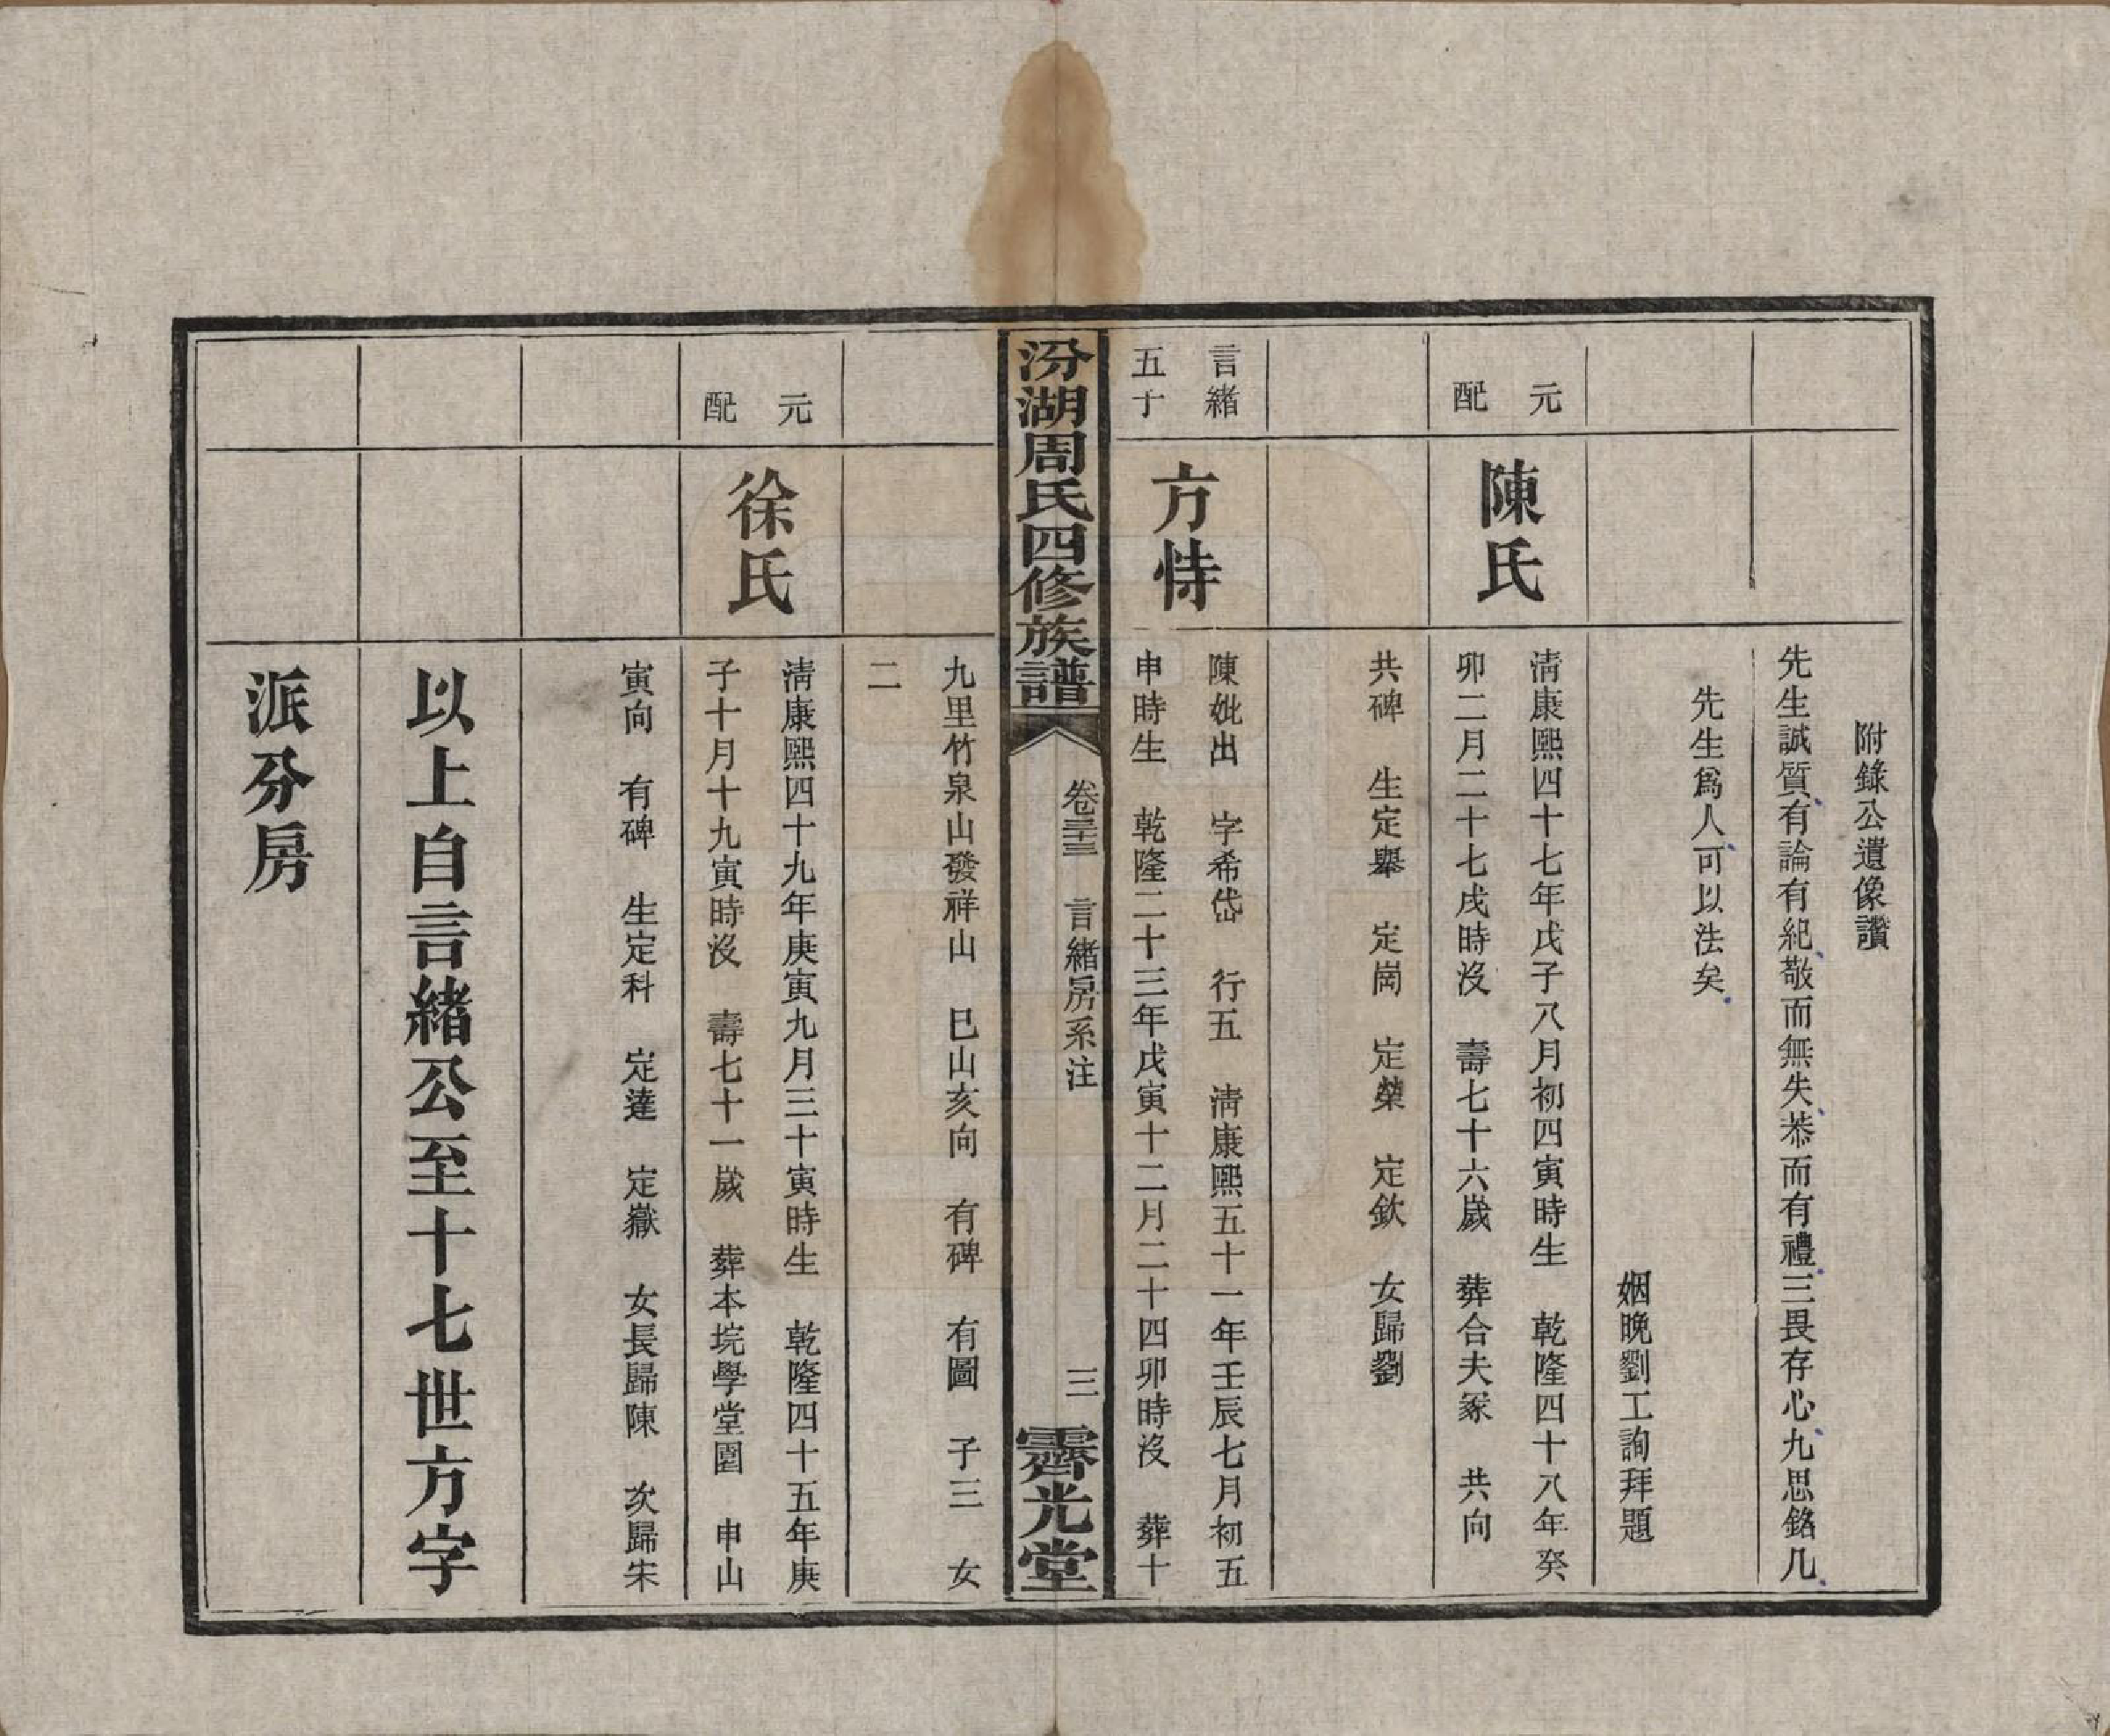 附錄公遺像讚
先生誠質有論有紀敬而無失恭而有禮三畏存心九思銘几
先生爲人可以法矣
姻晚劉工詢拜題
元配
陳氏
淸康熙四十七年戊子八月初四寅時生 乾隆四十八年癸
卯二月二十七戌時沒 壽七十六歲 葬合夫冢 共向
共碑 生定舉 定崗 定榮 定欽 女歸劉
言緒
五子
方恃
陳妣出 字希岱 行五 淸康熙五十一年壬辰七月初五
申時生 乾隆二十三年戊寅十二月二十四卯時沒 葬十
汾湖周氏四修族譜
卷三十三 言緒房系注 三
霽光堂
九里竹泉山發祥山 巳山亥向 有碑 有圖 子三 女
二
元配
徐氏
淸康熙四十九年庚寅九月三十寅時生 乾隆四十五年庚
子十月十九寅時沒 壽七十一歲 葬本垸學堂園 申山
寅向 有碑 生定科 定達 定嶽 女長歸陳 次歸宋
以上自言緒公至十七世方字
派分房